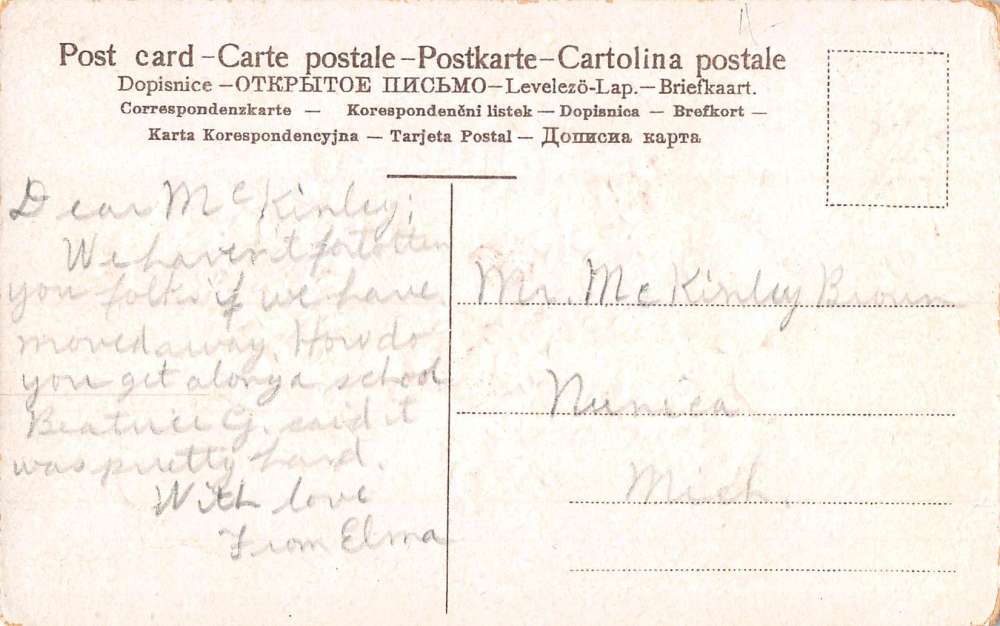 Post card – Carte postale – Postkarte – Cartolina postale
Dopisnice – ОТКРЫТОЕ ПИСЬМО – Levelező-Lap. – Briefkaart.
Correspondenzkarte – Korespondenční listek – Dopisnica – Brefkort –
Karta Korespondencyjna – Tarjeta Postal – Дописна карта
Dear McKinley;
We haven't fortotten
you folks if we have
moved away. How do
you get along a school
Beatrice G. said it
was pretty hard.
With love
From Elma
Mr. McKinley Brown
Nunica
Mich.